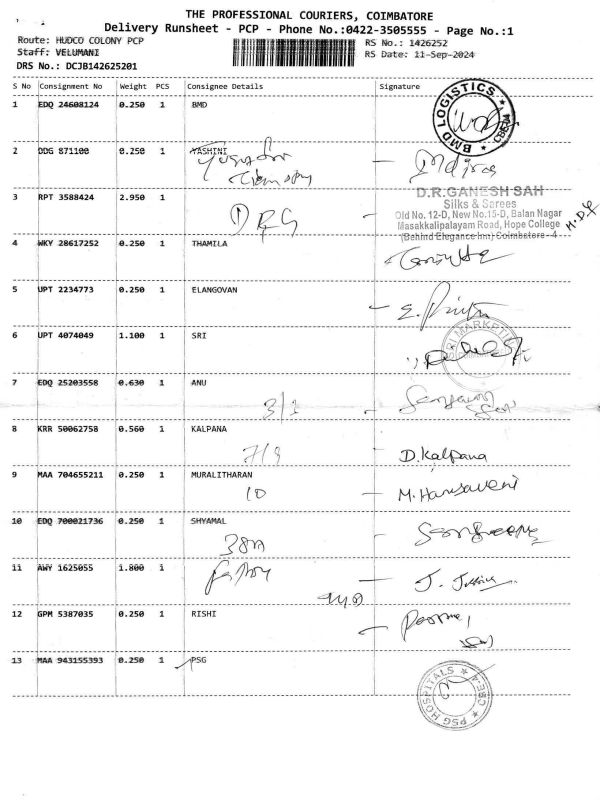 THE PROFESSIONAL COURIERS, COIMBATORE
Delivery Runsheet - PCP - Phone No.:0422-3505555 - Page No.:1
Route: HUDCO COLONY PCP
RS No.: 1426252
Staff: VELUMANI
RS Date: 11-Sep-2024
DRS No.: DCJB142625201
S No Consignment No Weight PCS Consignee Details Signature
1 EDQ 24608124 0.250 1 BMD
BMD LOGISTICS
CBE-04
2 DDG 871100 0.250 1 YASHINI
3 RPT 3588424 2.950 1
DRG
D.R.GANESH SAH
Silks & Sarees
Old No. 12-D, New No.15-D, Balan Nagar
Masakkalipalayam Road, Hope College
(Behind Elegance Inn) Coimbatore - 4
4 WKY 28617252 0.250 1 THAMILA
5 UPT 2234773 0.250 1 ELANGOVAN
6 UPT 4074049 1.100 1 SRI
SRI MARKETING
7 EDQ 25203558 0.630 1 ANU
3/1
8 KRR 50062758 0.560 1 KALPANA
7/9 D.Kalpana
9 MAA 704655211 0.250 1 MURALITHARAN
10 M. Hansaveni
10 EDQ 700021736 0.250 1 SHYAMAL
11 AWY 1625055 1.800 1
12 GPM 5387035 0.250 1 RISHI
13 MAA 943155393 0.250 1 PSG
PSG HOSPITALS
CBE-4